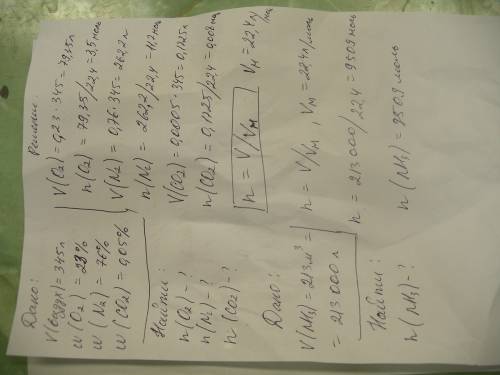 Дано:
V(воздух) = 345 л
w(O₂) = 23%
w(N₂) = 76%
w(CO₂) = 0,05%
Найти:
n(O₂) - ?
n(N₂) - ?
n(CO₂) - ?
Решение:
V(O₂) = 0,23 · 345 = 79,35 л
n(O₂) = 79,35/22,4 = 3,5 моль
V(N₂) = 0,76 · 345 = 262,2 л
n(N₂) = 262,2/22,4 = 11,7 моль
V(CO₂) = 0,0005 · 345 = 0,1725 л
n(CO₂) = 0,1725/22,4 = 0,008 моль
n = V/Vм Vм = 22,4 л/моль
Дано:
V(NH₃) = 213 м³ =
= 213 000 л
Найти:
n(NH₃) - ?
n = V/Vм, Vм = 22,4 л/моль
n = 213 000/22,4 = 9509 моль
n(NH₃) = 9509 моль